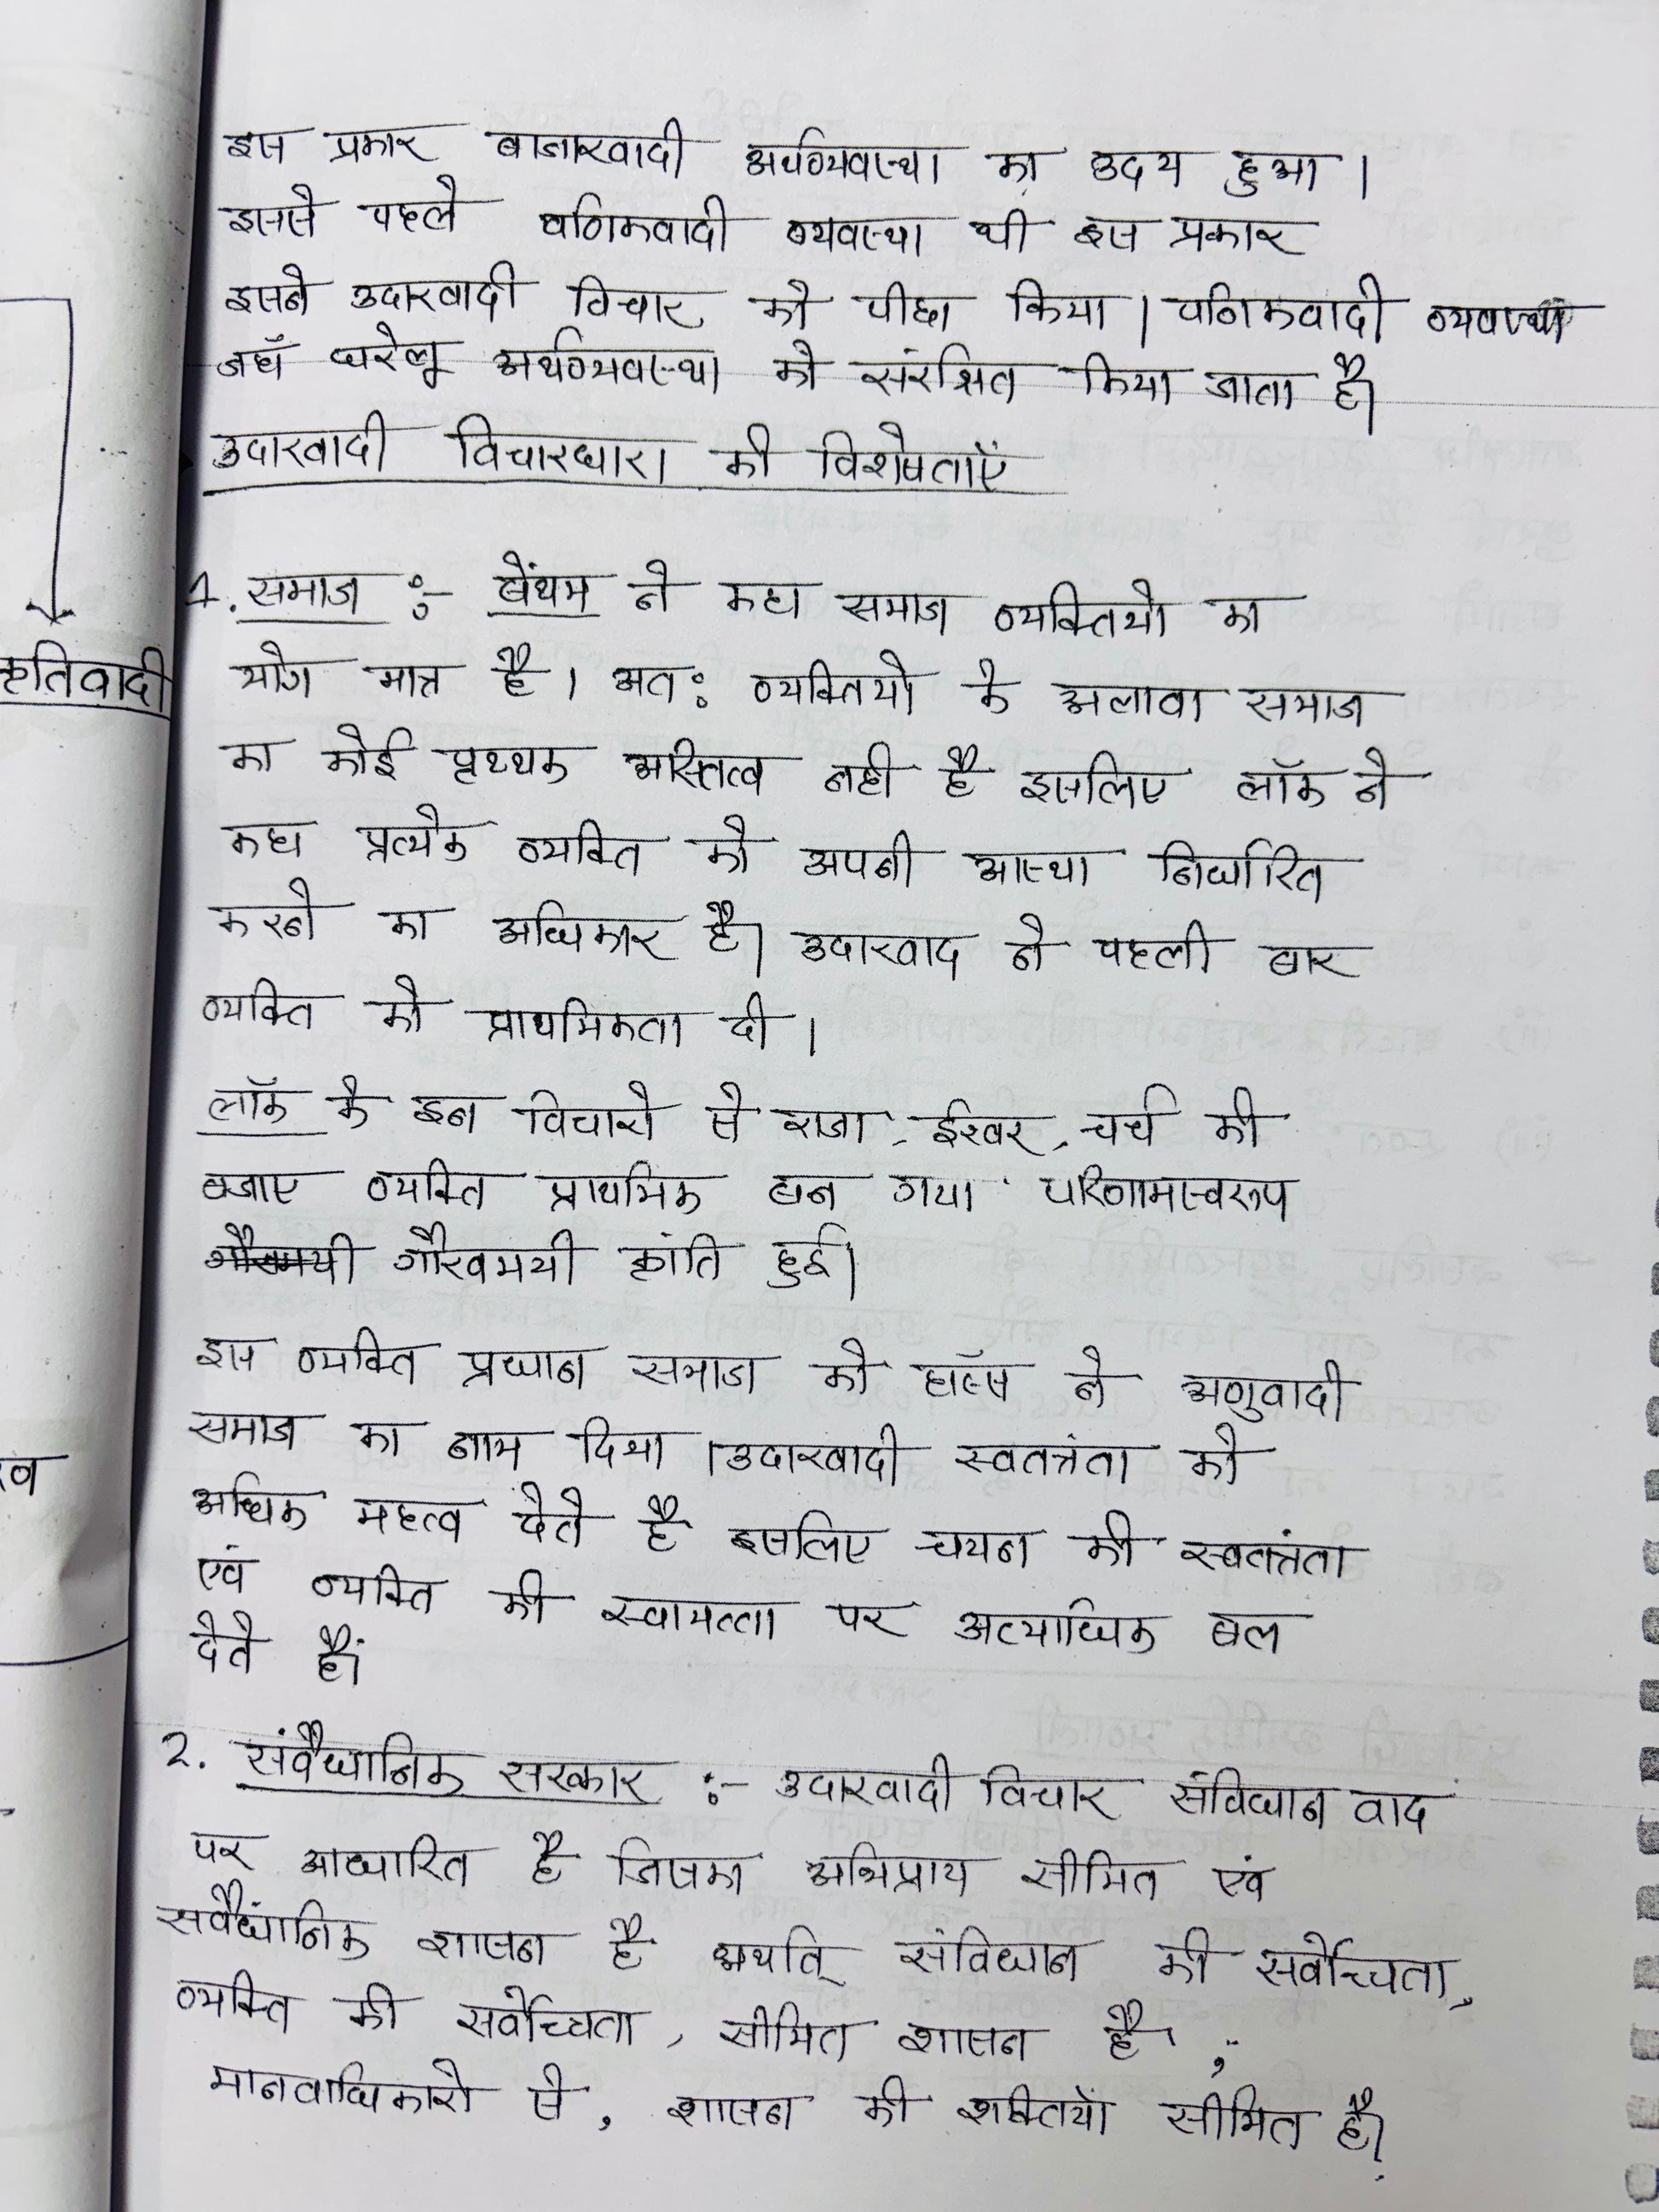 इस प्रकार बाजारवादी अर्थव्यवस्था का उदय हुआ ।
इससे पहले वणिकवादी व्यवस्था थी इस प्रकार
इसने उदारवादी विचार को पीछा किया । वणिकवादी व्यवस्था
जहाँ घरेलू अर्थव्यवस्था को संरक्षित किया जाता है।
उदारवादी विचारधारा की विशेषताएँ
1. समाज :- बेंथम ने कहा समाज व्यक्तियो का
योग मात्र है । अत: व्यक्तियो के अलावा समाज
का कोई पृथ्थक अस्तित्व नही है इसलिए लॉक ने
कहा प्रत्येक व्यक्ति को अपनी आस्था निर्धारित
कृतिवादी
करने का अधिकार है। उदारवाद ने पहली बार
व्यक्ति को प्राथमिकता दी ।
लॉक के इन विचारो से राजा, ईश्वर, चर्च की
बजाए व्यक्ति प्राथमिक बन गया परिणामस्वरूप
गौरवमयी क्रांति हुई।
इस व्यक्ति प्रधान समाज को हॉब्स ने अणुवादी
समाज का नाम दिया । उदारवादी स्वतत्रंता को
अधिक महत्व देते है इसलिए चयन की स्वतत्रंता
एवं व्यक्ति की स्वायत्ता पर अत्याधिक बल
देते हैं।
2. संवैधानिक सरकार :- उदारवादी विचार संविधान वाद
पर आधारित है जिसका अभिप्राय सीमित एवं
सवैधांनिक शासन है अर्थात् संविधान की सर्वोच्चता,
व्यक्ति की सर्वोच्चता, सीमित शासन है ;
मानवाधिकारो से, शासन की शक्तियाँ सीमित है।